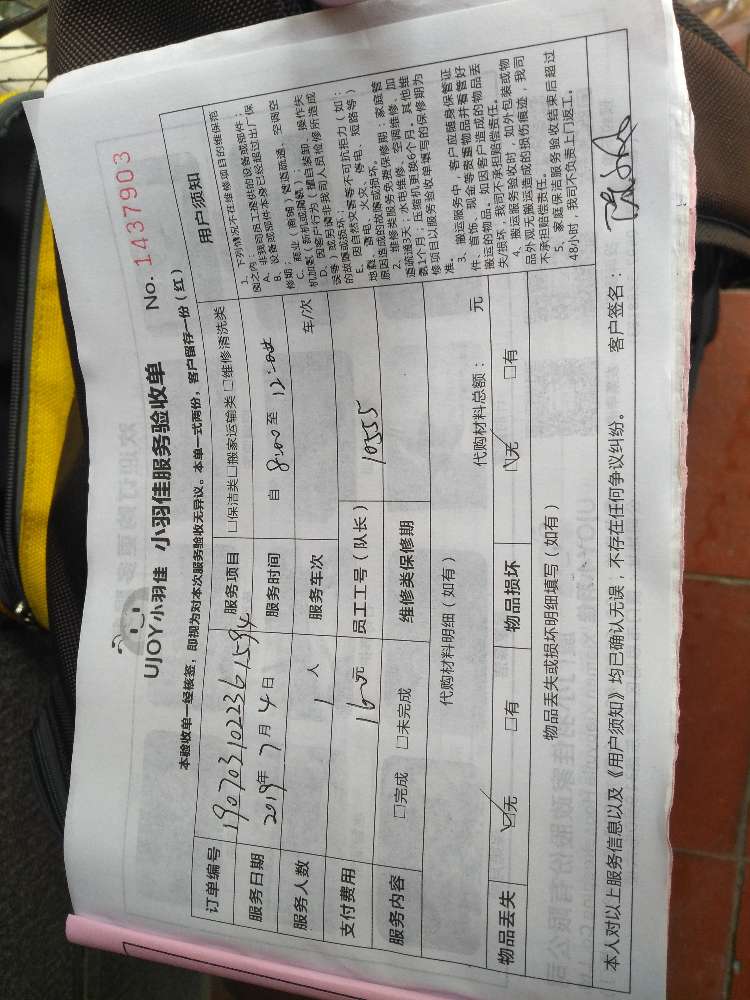 UJOY小羽佳 小羽佳服务验收单 No. 1437903
本验收单一经核签，即视为对本次服务验收无异议。本单一式两份，客户留存一份（红）
订单编号 1907031022361594 服务项目 □保洁类□搬家运输类 □维修清洗类
服务日期 2019年 7月 4日 服务时间 自 8:00 至 12:00
服务人数 1 人 服务车次 车/次
支付费用 160元 员工工号（队长） 10555
服务内容 □完成 □未完成 维修类保修期
代购材料明细（如有） 代购材料总额： 元
物品丢失 ☑无 □有 物品损坏 ☑无 □有
物品丢失或损坏明细填写（如有）
用户须知
1、下列情况不在维修项目的维保范
围之内：
A、非我司员工提供的设备或部件；
B、设备或部件本身已经超过出厂保
修期；
C、商业（商铺）管道疏通、空调空
机加氟（新机或漏氟）；
D、因客户行为（擅自装卸、操作失
误等）或另请非我司人员检修所造成
的故障或损坏；
E、因自然灾害等不可抗拒力（如：
地震、雷电、火灾、停电、短路等）
原因造成的故障或损坏。
2、维修类服务免费保修期：家庭管
道疏通7天；水电维修、空调维修、加
氟1个月；压缩机更换6个月。其他维
修项目以服务验收单填写的保修期为
准。
3、搬运服务中，客户应随身保管证
件、首饰、现金等贵重物品并看管好
搬运的物品。如因客户造成的物品丢
失/损坏，我司不承担赔偿责任。
4、搬运服务验收时，如外包装或物
品外观无搬运造成的损伤痕迹，我司
不承担赔偿责任。
5、家庭保洁服务验收结束后超过
48小时，我司不负责上门返工。
本人对以上服务信息以及《用户须知》均已确认无误；不存在任何争议纠纷。 客户签名：